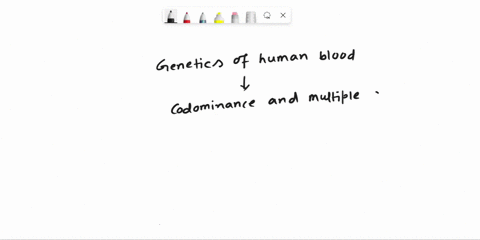 Genetics of human blood
Codominance and multiple